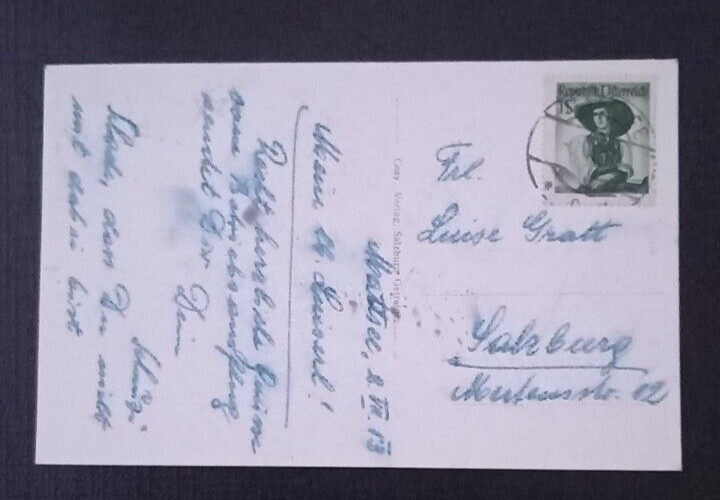 Mattsee, 2. VII. 53
Mein lb. Luiserl!
Recht herzliche Grüsse
vom
sendet Dir
Dein
Schade, dass Du nicht
mit dabei bist
Cosy Verlag, Salzburg
Republik Österreich
1S
Frl.
Luise Gratt
Salzburg
Mertensstr. 12